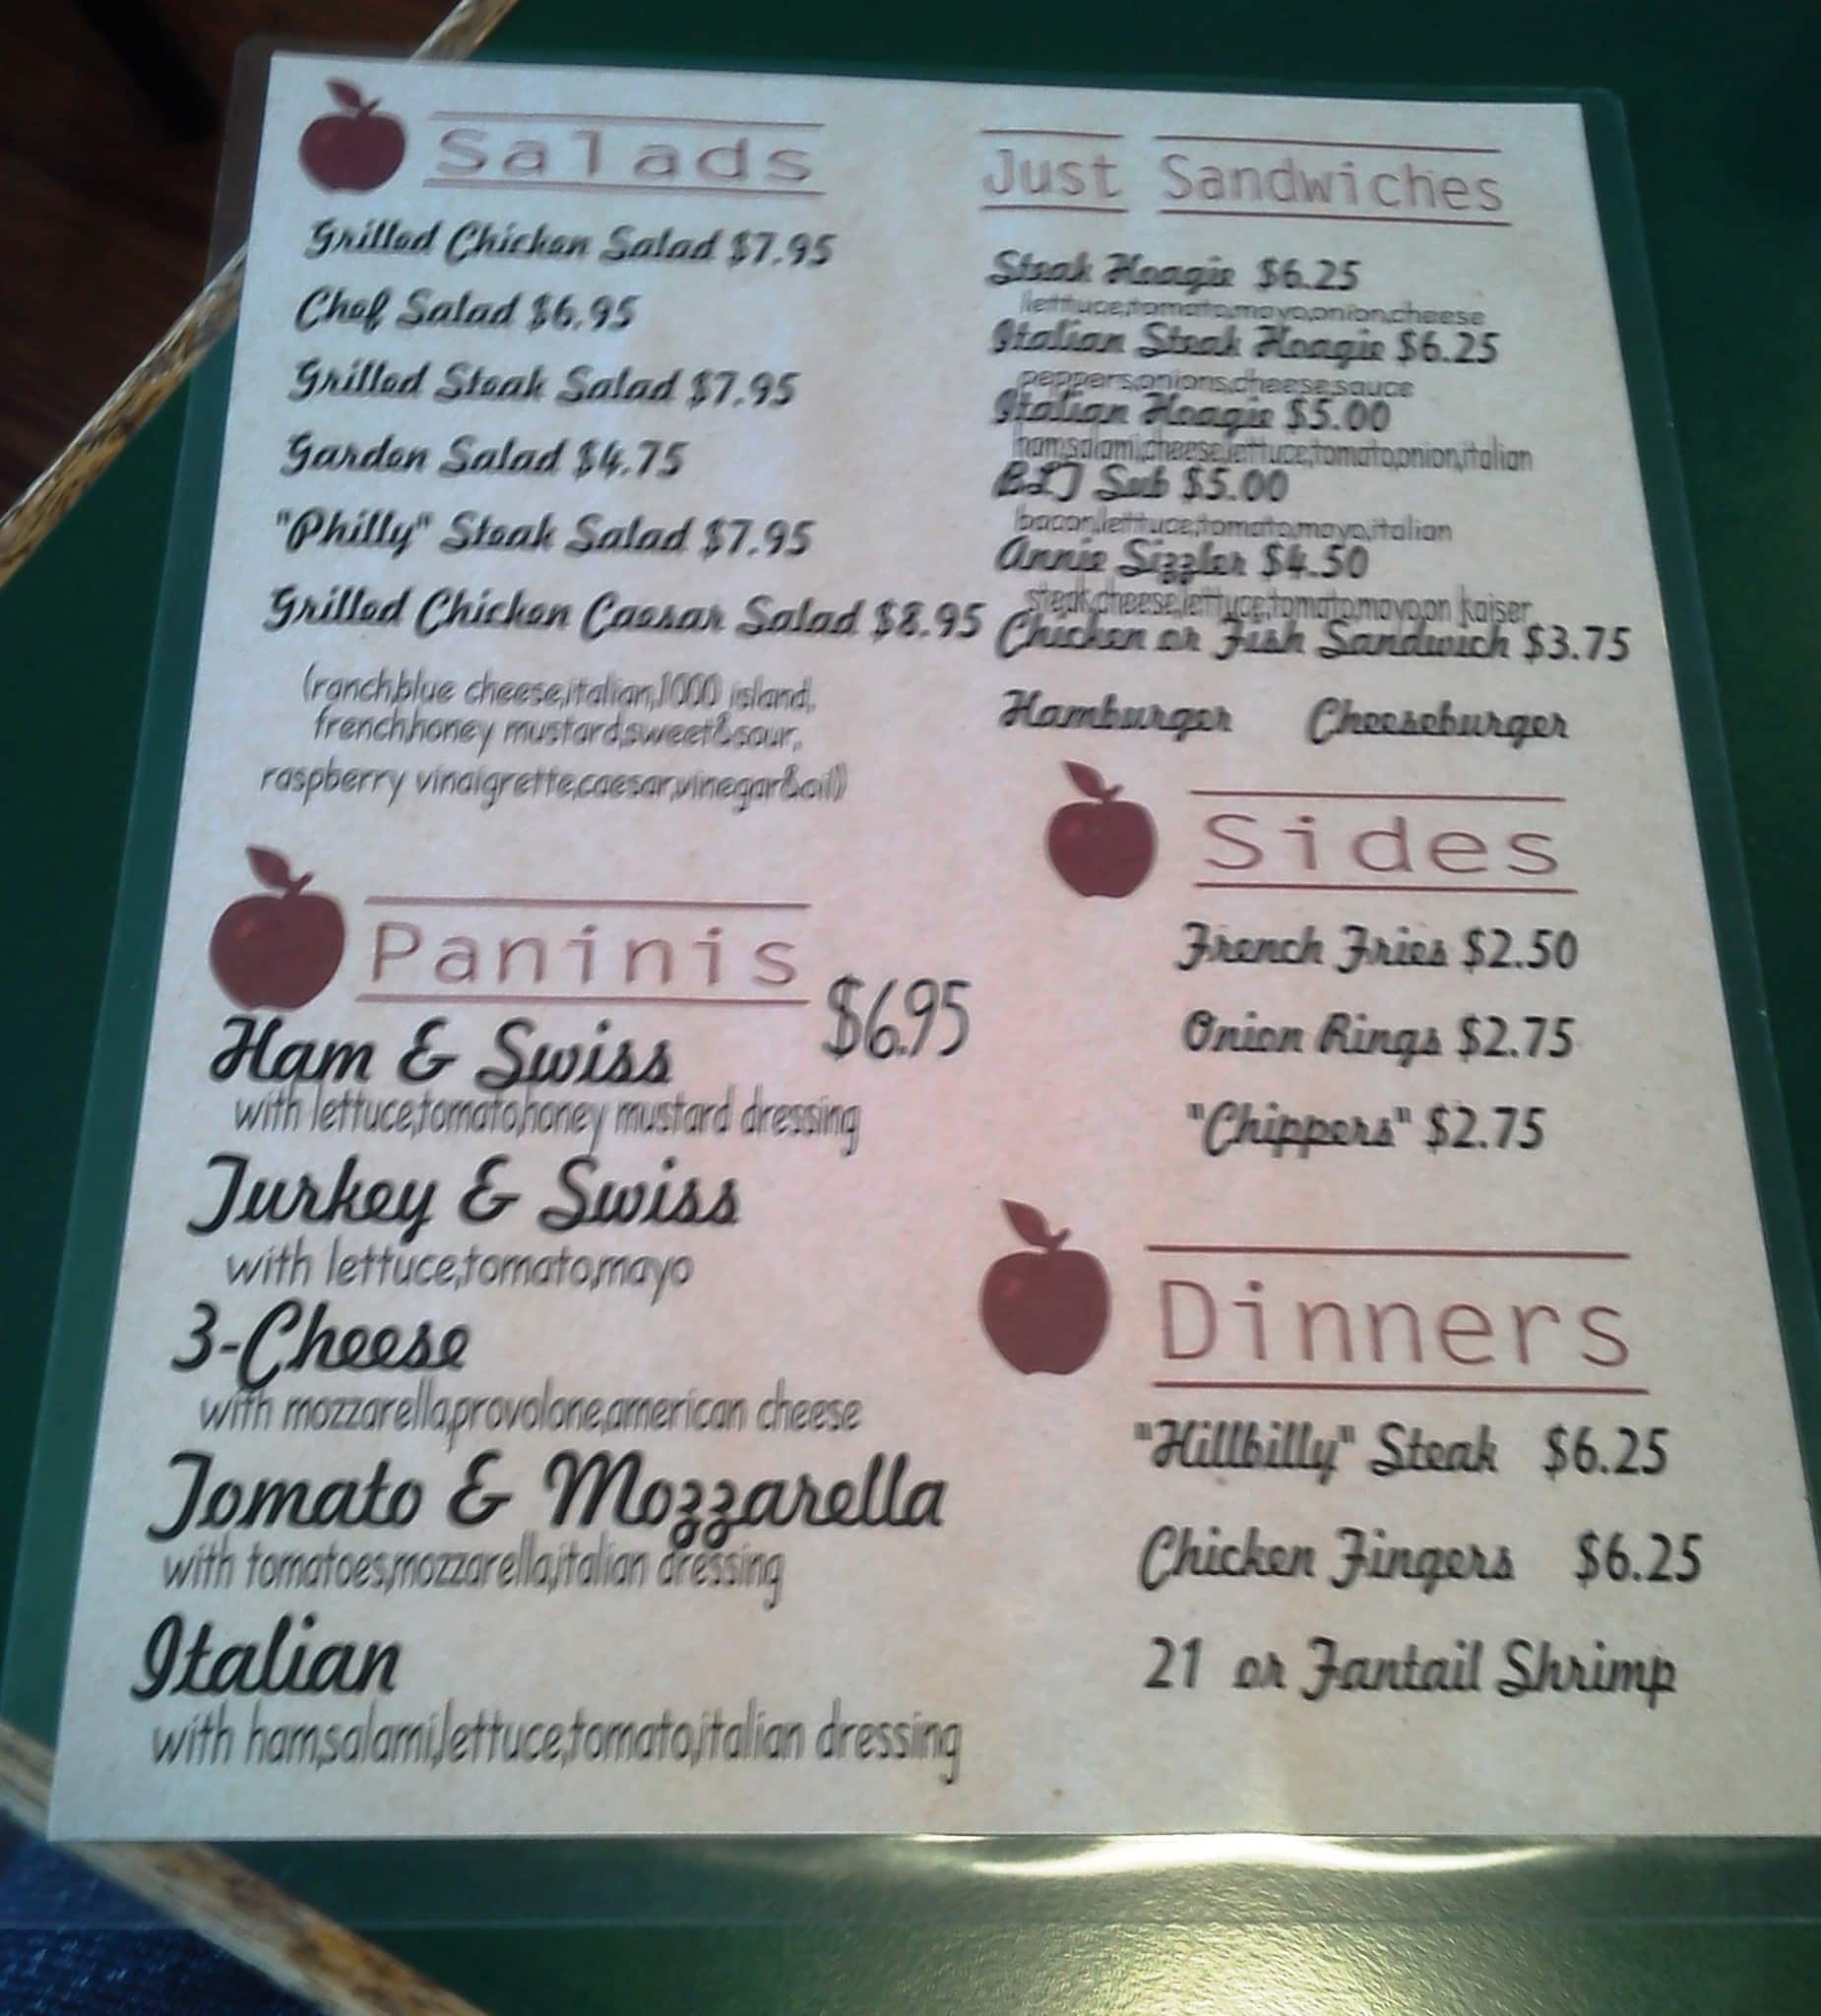 Salads
Grilled Chicken Salad $7.95
Chef Salad $6.95
Grilled Steak Salad $7.95
Garden Salad $4.75
"Philly" Steak Salad $7.95
Grilled Chicken Caesar Salad $8.95
(ranch,blue cheese,italian,1000 island,
french,honey mustard,sweet&sour,
raspberry vinaigrette,caesar,vinegar&oil)
Paninis
$6.95
Ham & Swiss
with lettuce,tomato,honey mustard dressing
Turkey & Swiss
with lettuce,tomato,mayo
3-Cheese
with mozzarella,provolone,american cheese
Tomato & Mozzarella
with tomatoes,mozzarella,italian dressing
Italian
with ham,salami,lettuce,tomato,italian dressing
Just Sandwiches
Steak Hoagie $6.25
letttuce,tomato,mayo,onion,cheese
Italian Steak Hoagie $6.25
peppers,onions,cheese,sauce
Italian Hoagie $5.00
ham,salami,cheese,lettuce,tomato,onion,italian
BLT Sub $5.00
bacon,lettuce,tomato,mayo,italian
Annie Sizzler $4.50
steak,cheese,lettuce,tomato,mayo,on kaiser
Chicken or Fish Sandwich $3.75
Hamburger Cheeseburger
Sides
French Fries $2.50
Onion Rings $2.75
"Chippers" $2.75
Dinners
"Hillbilly" Steak $6.25
Chicken Fingers $6.25
21 or Fantail Shrimp